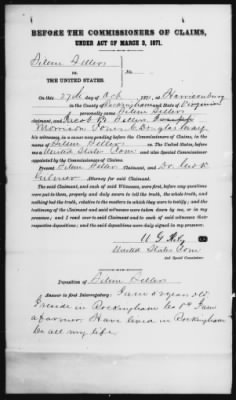 BEFORE THE COMMISSIONERS OF CLAIMS,
UNDER ACT OF MARCH 3, 1871.
vs. No.
THE UNITED STATES.
On this 27th day of Oct, 1871, at Harrisonburg
in the County of Rockingham and State of Virginia
personally came
claimant, and Jacob
Morrison
his witnesses, in a cause now pending before the Commissioners of Claims, in the
name of vs. The United States, before
me United States Com and also Special Commissioner
appointed by the Commissioners of Claims.
Present and
Attorney for said Claimant.
The said Claimant, and each of said Witnesses, were first, before any questions
were put to them, properly and duly sworn to tell the truth, the whole truth, and
nothing but the truth, relative to the matters in which they were to testify; and the
testimony of the Claimant and said witnesses were taken down by me, or in my
presence; and I read over to said Claimant and to each of said witnesses their
respective depositions; and the depositions were duly signed in my presence:
United States Com
and Special Commissioner.
Deposition of
Answer to first Interrogatory: I am years old
I reside in Rockingham Co Va I am
a farmer. Have lived in Rockingham
Co all my life.